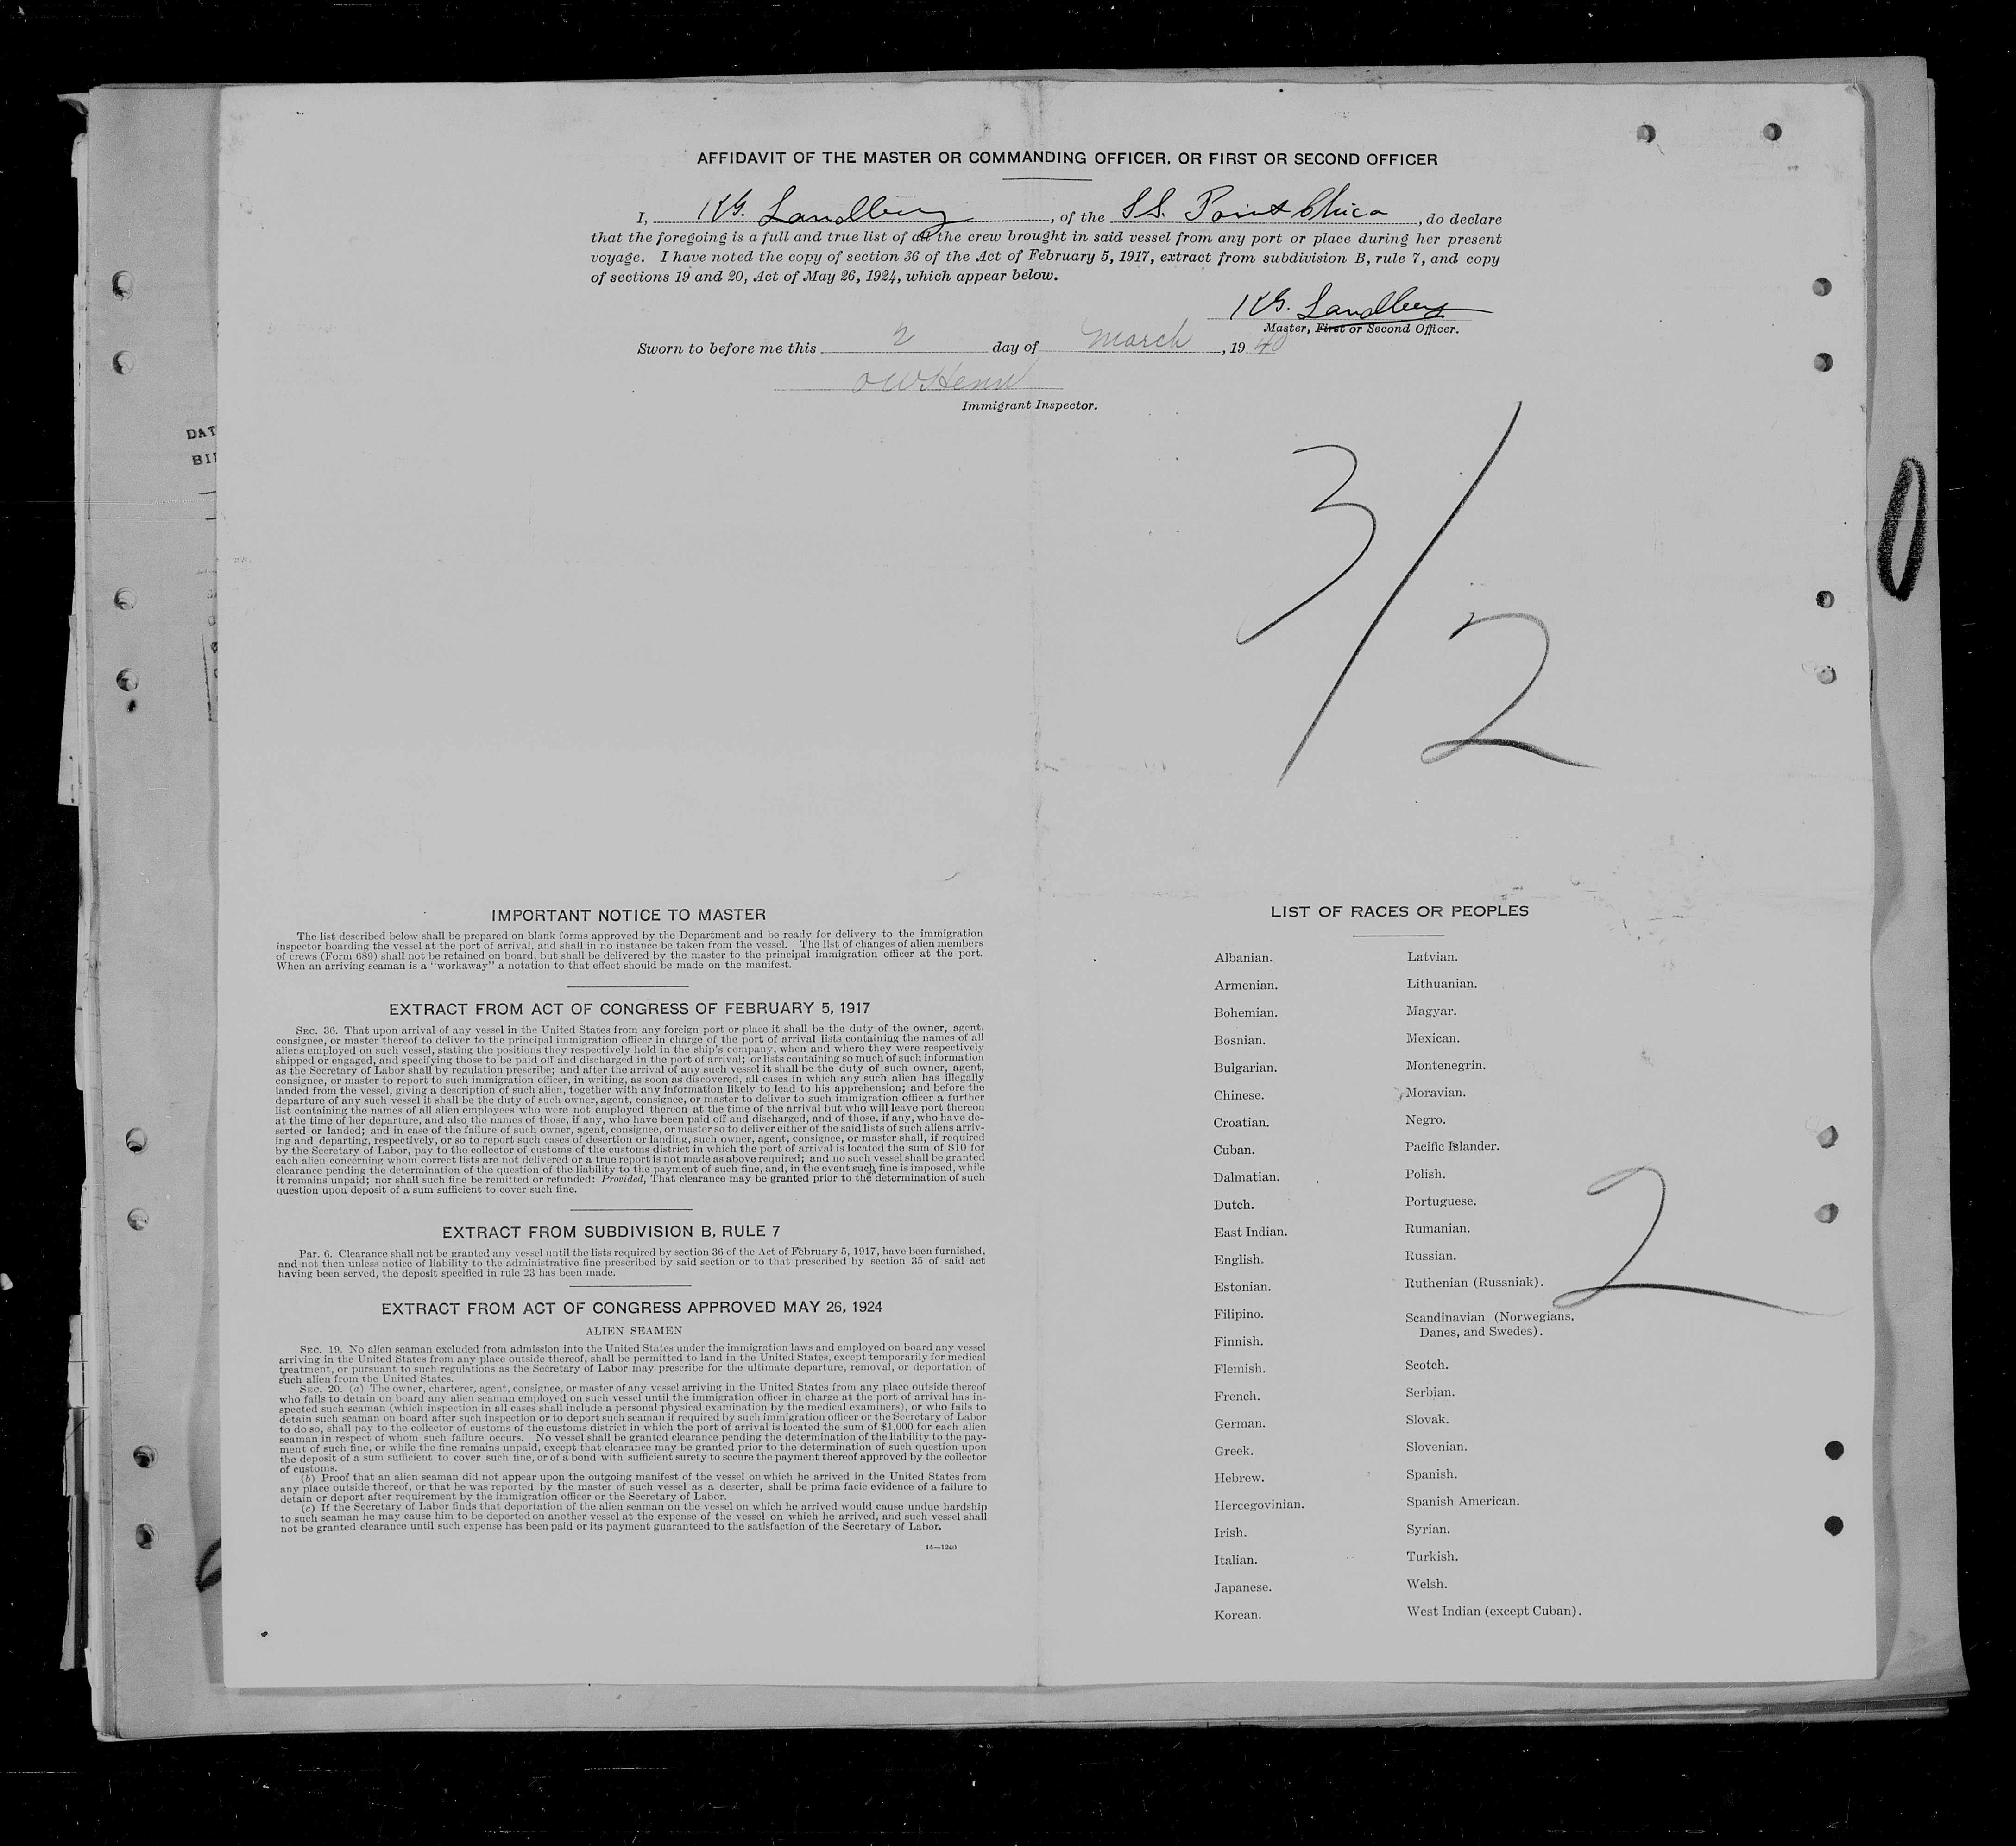 AFFIDAVIT OF THE MASTER OR COMMANDING OFFICER, OR FIRST OR SECOND OFFICER
I, K.G. Landberg, of the S.S. Point Chico, do declare
that the foregoing is a full and true list of all the crew brought in said vessel from any port or place during her present
voyage. I have noted the copy of section 36 of the Act of February 5, 1917, extract from subdivision B, rule 7, and copy
of sections 19 and 20, Act of May 26, 1924, which appear below.
K.G. Landberg
Master, First or Second Officer.
Sworn to before me this 2 day of March, 1940
Immigrant Inspector.
DAT
BI
3/2
0
IMPORTANT NOTICE TO MASTER
The list described below shall be prepared on blank forms approved by the Department and be ready for delivery to the immigration
inspector boarding the vessel at the port of arrival, and shall in no instance be taken from the vessel. The list of changes of alien members
of crews (Form 689) shall not be retained on board, but shall be delivered by the master to the principal immigration officer at the port.
When an arriving seaman is a "workaway" a notation to that effect should be made on the manifest.
EXTRACT FROM ACT OF CONGRESS OF FEBRUARY 5, 1917
SEC. 36. That upon arrival of any vessel in the United States from any foreign port or place it shall be the duty of the owner, agent,
consignee, or master thereof to deliver to the principal immigration officer in charge of the port of arrival lists containing the names of all
aliens employed on such vessel, stating the positions they respectively hold in the ship's company, when and where they were respectively
shipped or engaged, and specifying those to be paid off and discharged in the port of arrival; or lists containing so much of such information
as the Secretary of Labor shall by regulation prescribe; and after the arrival of any such vessel it shall be the duty of such owner, agent,
consignee, or master to report to such immigration officer, in writing, as soon as discovered, all cases in which any such alien has illegally
landed from the vessel, giving a description of such alien, together with any information likely to lead to his apprehension; and before the
departure of any such vessel it shall be the duty of such owner, agent, consignee, or master to deliver to such immigration officer a further
list containing the names of all alien employees who were not employed thereon at the time of the arrival but who will leave port thereon
at the time of her departure, and also the names of those, if any, who have been paid off and discharged, and of those, if any, who have de-
serted or landed; and in case of the failure of such owner, agent, consignee, or master so to deliver either of the said lists of such aliens arriv-
ing and departing, respectively, or so to report such cases of desertion or landing, such owner, agent, consignee, or master shall, if required
by the Secretary of Labor, pay to the collector of customs of the customs district in which the port of arrival is located the sum of $10 for
each alien concerning whom correct lists are not delivered or a true report is not made as above required; and no such vessel shall be granted
clearance pending the determination of the question of the liability to the payment of such fine, and, in the event such fine is imposed, while
it remains unpaid; nor shall such fine be remitted or refunded: Provided, That clearance may be granted prior to the determination of such
question upon deposit of a sum sufficient to cover such fine.
EXTRACT FROM SUBDIVISION B, RULE 7
Par. 6. Clearance shall not be granted any vessel until the lists required by section 36 of the Act of February 5, 1917, have been furnished,
and not then unless notice of liability to the administrative fine prescribed by said section or to that prescribed by section 35 of said act
having been served, the deposit specified in rule 23 has been made.
EXTRACT FROM ACT OF CONGRESS APPROVED MAY 26, 1924
ALIEN SEAMEN
SEC. 19. No alien seaman excluded from admission into the United States under the immigration laws and employed on board any vessel
arriving in the United States from any place outside thereof, shall be permitted to land in the United States, except temporarily for medical
treatment, or pursuant to such regulations as the Secretary of Labor may prescribe for the ultimate departure, removal, or deportation of
such alien from the United States.
SEC. 20. (a) The owner, charterer, agent, consignee, or master of any vessel arriving in the United States from any place outside thereof
who fails to detain on board any alien seaman employed on such vessel until the immigration officer in charge at the port of arrival has in-
spected such seaman (which inspection in all cases shall include a personal physical examination by the medical examiners), or who fails to
detain such seaman on board after such inspection or to deport such seaman if required by such immigration officer or the Secretary of Labor
to do so, shall pay to the collector of customs of the customs district in which the port of arrival is located the sum of $1,000 for each alien
seaman in respect of whom such failure occurs. No vessel shall be granted clearance pending the determination of the liability to the pay-
ment of such fine, or while the fine remains unpaid, except that clearance may be granted prior to the determination of such question upon
the deposit of a sum sufficient to cover such fine, or of a bond with sufficient surety to secure the payment thereof approved by the collector
of customs.
(b) Proof that an alien seaman did not appear upon the outgoing manifest of the vessel on which he arrived in the United States from
any place outside thereof, or that he was reported by the master of such vessel as a deserter, shall be prima facie evidence of a failure to
detain or deport after requirement by the immigration officer or the Secretary of Labor.
(c) If the Secretary of Labor finds that deportation of the alien seaman on the vessel on which he arrived would cause undue hardship
to such seaman he may cause him to be deported on another vessel at the expense of the vessel on which he arrived, and such vessel shall
not be granted clearance until such expense has been paid or its payment guaranteed to the satisfaction of the Secretary of Labor.
14—1240
LIST OF RACES OR PEOPLES
Albanian.
Armenian.
Bohemian.
Bosnian.
Bulgarian.
Chinese.
Croatian.
Cuban.
Dalmatian.
Dutch.
East Indian.
English.
Estonian.
Filipino.
Finnish.
Flemish.
French.
German.
Greek.
Hebrew.
Hercegovinian.
Irish.
Italian.
Japanese.
Korean.
Latvian.
Lithuanian.
Magyar.
Mexican.
Montenegrin.
Moravian.
Negro.
Pacific Islander.
Polish.
Portuguese.
Rumanian.
Russian.
Ruthenian (Russniak).
Scandinavian (Norwegians,
Danes, and Swedes).
Scotch.
Serbian.
Slovak.
Slovenian.
Spanish.
Spanish American.
Syrian.
Turkish.
Welsh.
West Indian (except Cuban).
2